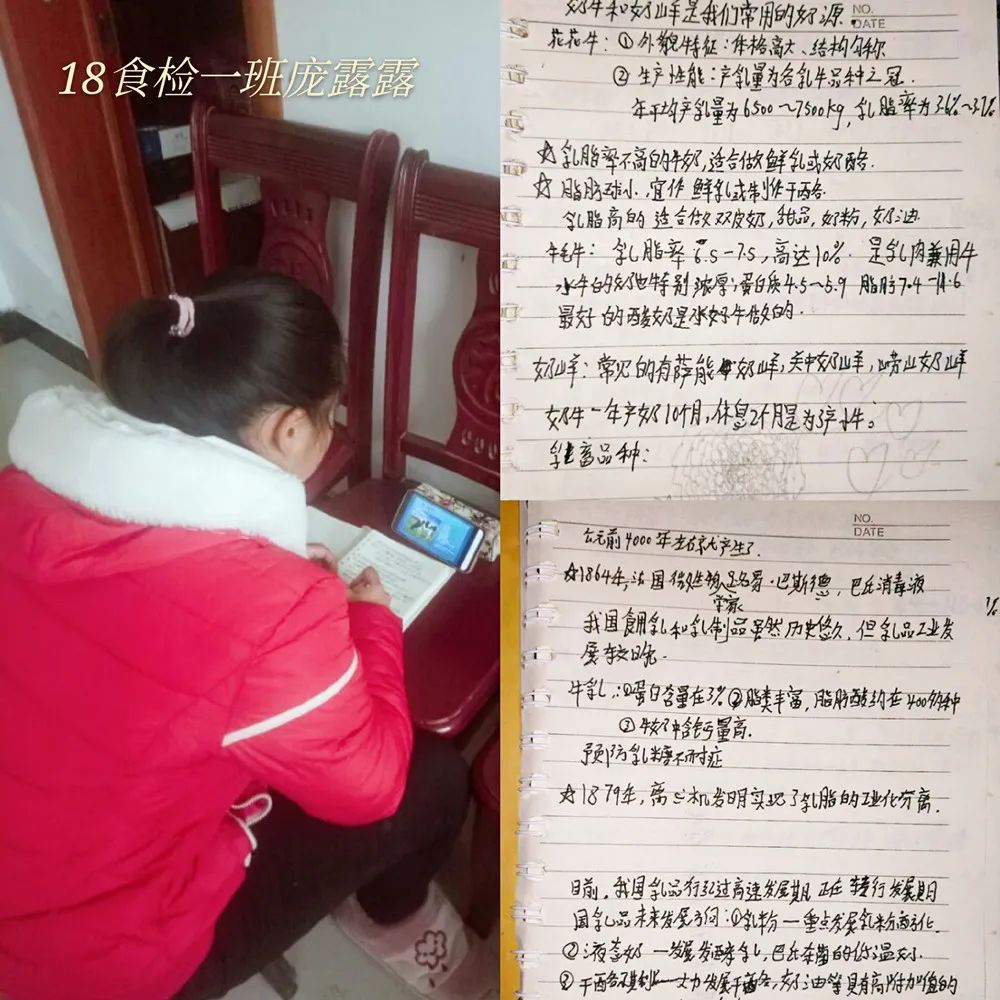 18食检一班庞露露
NO.
DATE
奶牛和奶山羊是我们常用的奶源
花花牛：①外貌特征：体格高大、结构匀称
②生产性能：产乳量为各乳牛品种之冠.
年平均产乳量为6500～7500kg，乳脂率为3.6%～3.7%
☆乳脂率不高的牛奶，适合做鲜乳或奶酪.
☆脂肪球小.宜作鲜乳或制作干酪
乳脂高的适合做双皮奶，甜品，奶粉，奶油
牦牛：乳脂率6.5-7.5，高达10%.是乳肉兼用牛
水牛的奶也特别浓厚；蛋白质4.5～5.9 脂肪7.4-11.6
最好的酸奶是水奶牛做的.
奶山羊：常见的有萨能奶山羊，关中奶山羊，崂山奶山羊
奶牛一年产奶10个月，休息2个月是为了产小牛。
乳畜品种：
NO.
DATE
公元前4000年左右就产生了.
☆1864年，法国微生物学家路易·巴斯德，巴氏消毒液
我国食用乳和乳制品虽然历史悠久，但乳品工业发
展较晚.
牛乳：①蛋白含量在3% ②脂类丰富，脂肪酸约在400多种
③牛奶中含钙量高.
预防乳糖不耐症
☆1879年，离心机发明实现了乳脂的工业化分离.
目前，我国乳品行业过高速发展期正在转行发展期
国乳品未来发展方向：①乳粉—重点发展乳粉配方化.
②液态奶—发展发酵乳，巴氏杀菌的低温奶.
③干酪—大力发展干酪，奶油等具有高附加值的